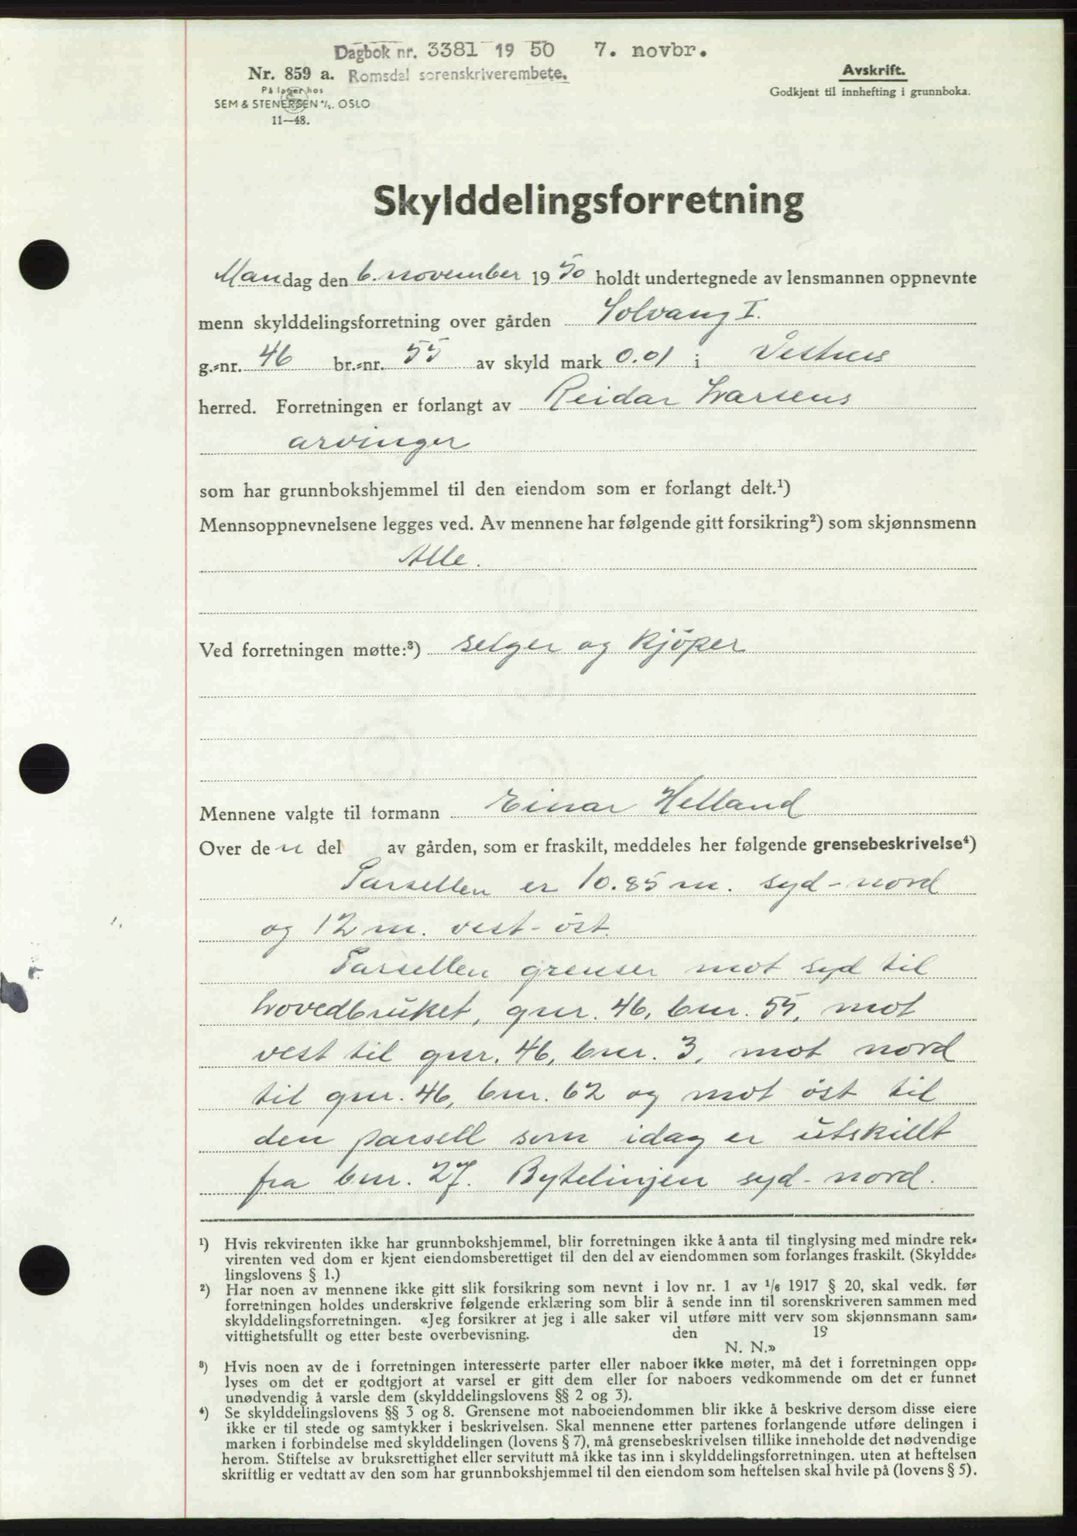 Dagbok nr. 3381 1950 7. novbr.
Nr. 859 a. Romsdal sorenskriverembete.
På lager hos
SEM & STENERSEN A/S. OSLO
11—48.
Avskrift.
Godkjent til innhefting i grunnboka.
Skylddelingsforretning
Mandag den 6. november 1950 holdt undertegnede av lensmannen oppnevnte
menn skylddelingsforretning over gården Solvang I.
g.-nr. 46 br.-nr. 55 av skyld mark 0.01 i Vestnes
herred. Forretningen er forlangt av Reidar Ivarsens
arvinger
som har grunnbokshjemmel til den eiendom som er forlangt delt.¹)
Mennsoppnevnelsene legges ved. Av mennene har følgende gitt forsikring²) som skjønnsmenn
Alle.
Ved forretningen møtte:³) selger og kjöper
Mennene valgte til formann Einar Helland
Over den del av gården, som er fraskilt, meddeles her følgende grensebeskrivelse⁴)
Parsellen er 10.85 m. syd-nord
og 12 m. vest-öst.
Parsellen grenser mot syd til
hovedbruket, gnr. 46, bnr. 55, mot
vest til gnr. 46, bnr. 3, mot nord
til gnr. 46, bnr. 62 og mot öst til
den parsell som idag er utskillt
fra bnr. 27. Bytelinjen syd-nord.
¹) Hvis rekvirenten ikke har grunnbokshjemmel, blir forretningen ikke å anta til tinglysing med mindre rek-
virenten ved dom er kjent eiendomsberettiget til den del av eiendommen som forlanges fraskilt. (Skyldde-
lingslovens § 1.)
²) Har noen av mennene ikke gitt slik forsikring som nevnt i lov nr. 1 av 1/6 1917 § 20, skal vedk. før
forretningen holdes underskrive følgende erklæring som blir å sende inn til sorenskriveren sammen med
skylddelingsforretningen. «Jeg forsikrer at jeg i alle saker vil utføre mitt verv som skjønnsmann sam-
vittighetsfullt og etter beste overbevisning. den 19
N. N.»
³) Hvis noen av de i forretningen interesserte parter eller naboer ikke møter, må det i forretningen opp-
lyses om det er godtgjort at varsel er gitt dem eller for naboers vedkommende om det er funnet
unødvendig å varsle dem (skylddelingslovens §§ 2 og 3).
⁴) Se skylddelingslovens §§ 3 og 8. Grensene mot naboeiendommen blir ikke å beskrive dersom disse eiere
ikke er til stede og samtykker i beskrivelsen. Skal mennene etter partenes forlangende utføre delingen i
marken i forbindelse med skylddelingen (lovens § 7), må grensebeskrivelsen tillike inneholde det nødvendige
herom. Stiftelse av bruksrettighet eller servitutt må ikke tas inn i skylddelingsforretningen. uten at heftelsen
skriftlig er vedtatt av den som har grunnbokshjemmel til den eiendom som heftelsen skal hvile på (lovens § 5).